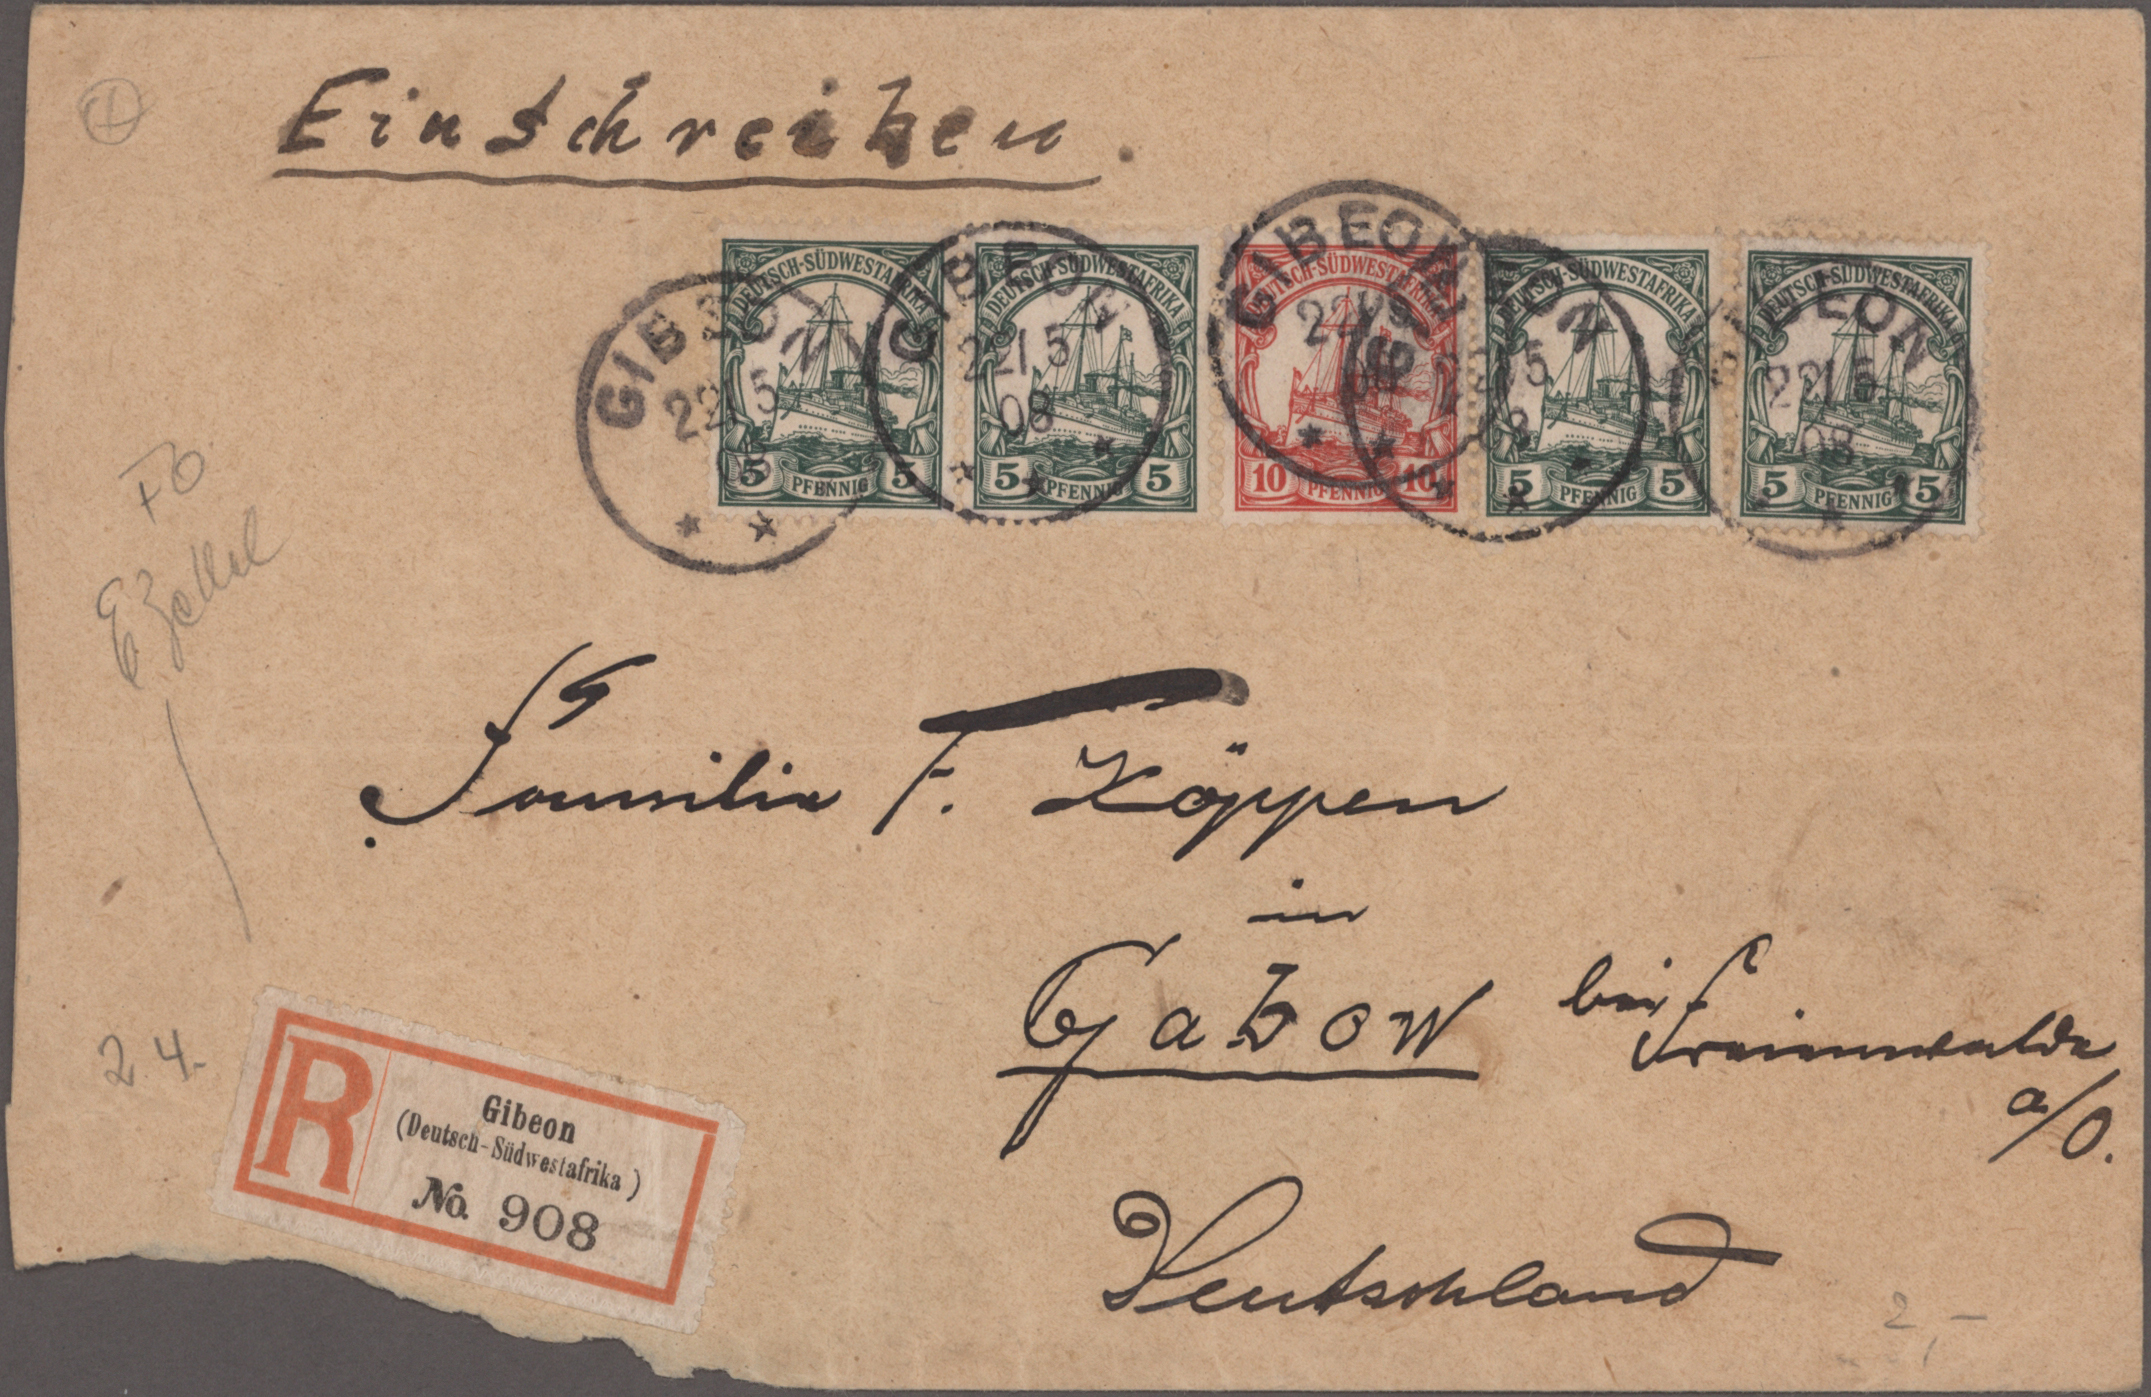 Einschreiben.
DEUTSCH-SÜDWESTAFRIKA
5 PFENNIG 5
DEUTSCH-SÜDWESTAFRIKA
5 PFENNIG 5
DEUTSCH-SÜDWESTAFRIKA
10 PFENNIG 10
DEUTSCH-SÜDWESTAFRIKA
5 PFENNIG 5
DEUTSCH-SÜDWESTAFRIKA
5 PFENNIG 5
GIBEON
22/5
08
GIBEON
22/5
08
GIBEON
22/5
08
GIBEON
22/5
08
GIBEON
22/5
08
Familie F. Köppen
in
Gabow bei Freienwalde
a/O.
Deutschland
R
Gibeon
(Deutsch-Südwestafrika)
No. 908
2.4.-
2,-